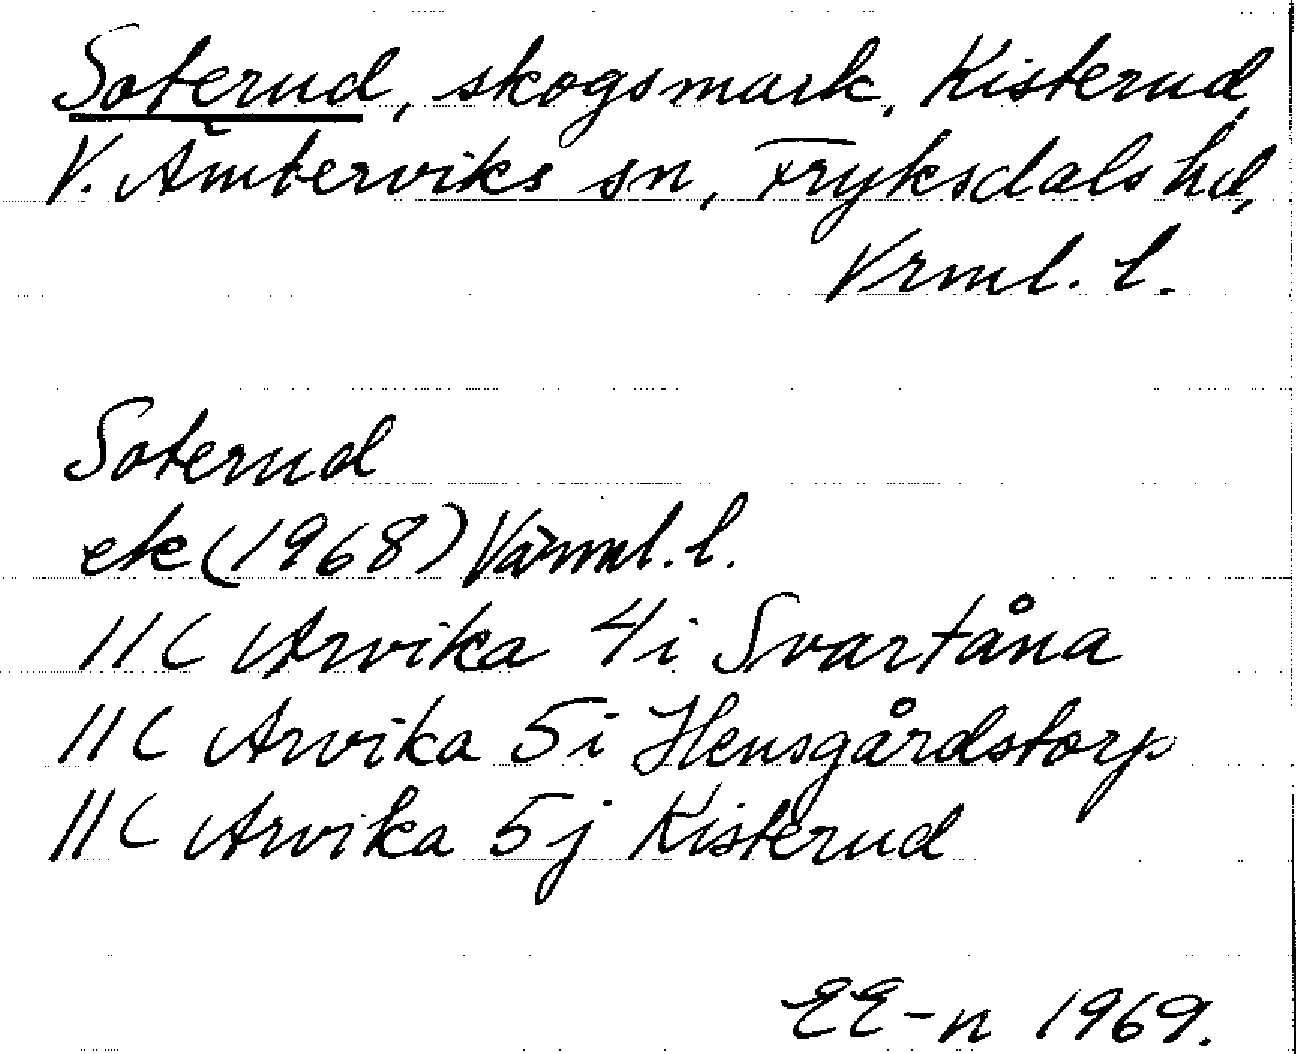 Soterud, skogsmark, Kisterud,
V. Ämterviks sn, Fryksdals hd,
Vrml. l.
Soterud
ek (1968) Värml. l.
11C Arvika 4i Svartåna
11C Arvika 5i Hensgårdstorp
11C Arvika 5j Kisterud
EE-n 1969.